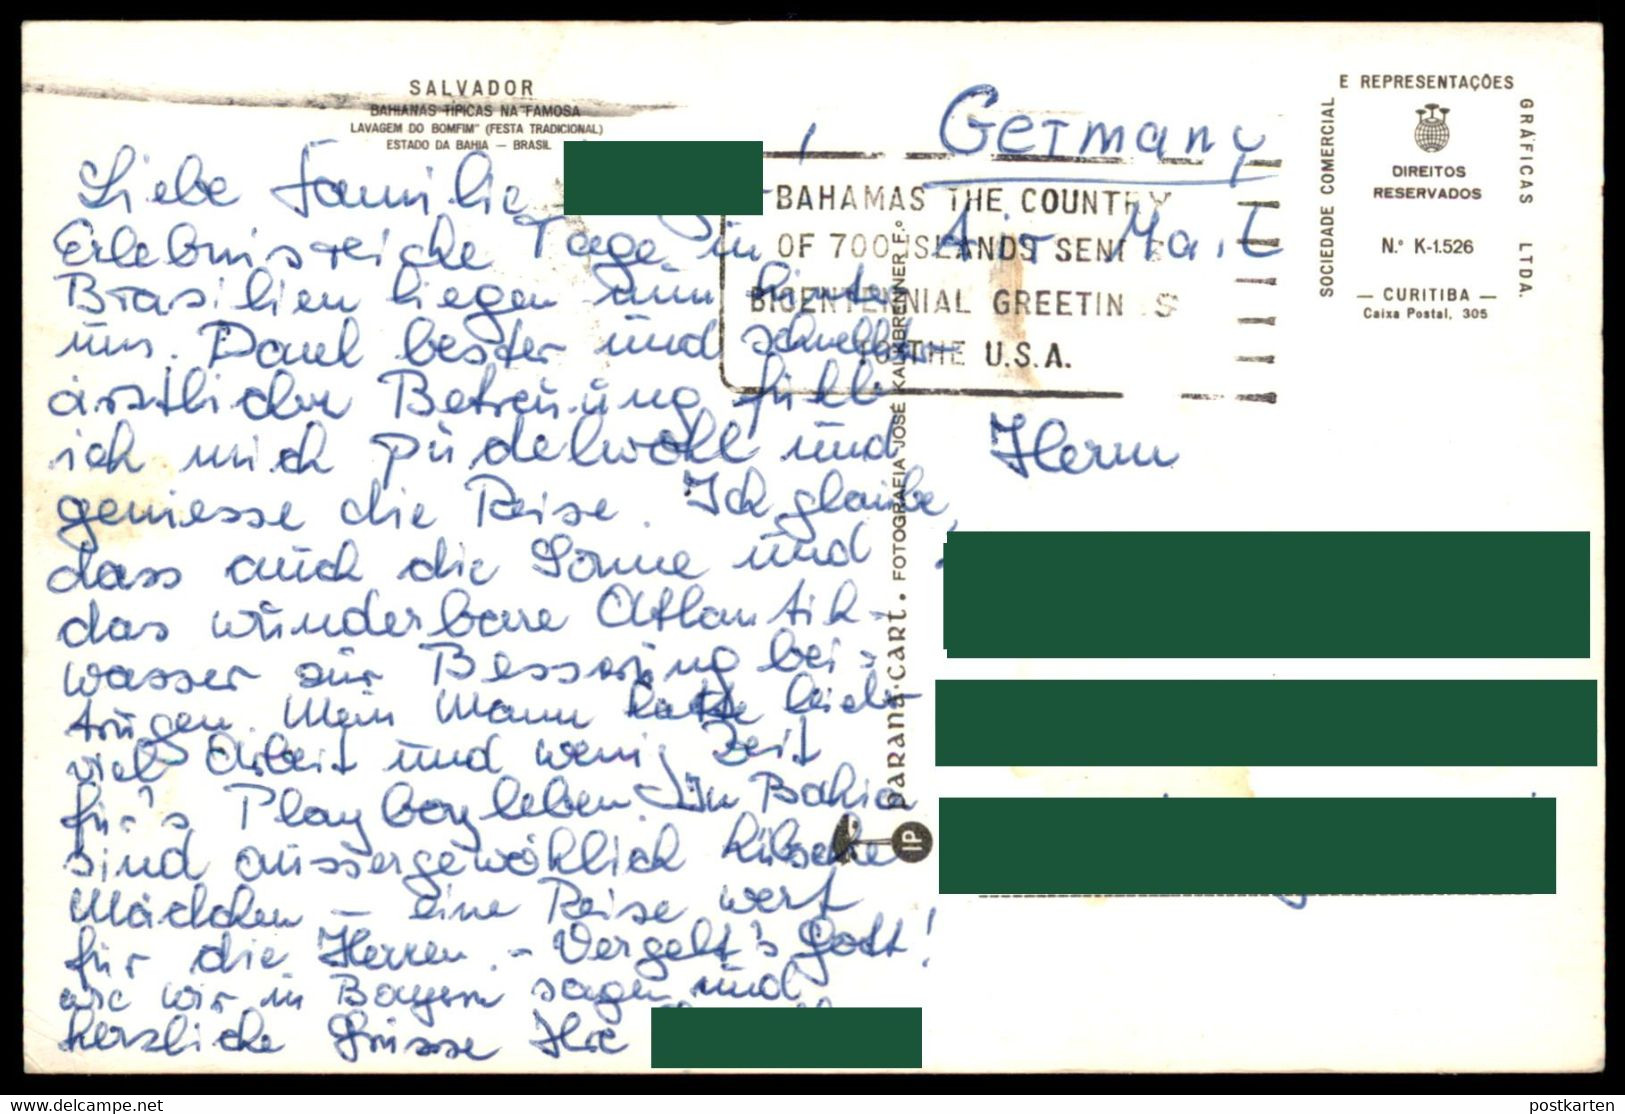 SALVADOR
BAHIANAS TÍPICAS NA "FAMOSA
LAVAGEM DO BOMFIM" (FESTA TRADICIONAL)
ESTADO DA BAHIA — BRASIL
Liebe Familie !
Erlebnisreiche Tage in
Brasilien liegen nun hinter
uns. Dank bester und schneller
ärztlicher Betreuung fühle
ich mich pudelwohl und
geniesse die Reise. Ich glaube,
dass auch die Sonne und
das wunderbare Atlantik-
wasser zur Besserung bei-
trugen. Mein Mann hatte leider
viel Arbeit und wenig Zeit
für's Playboyleben. In Bahia
sind aussergewöhlich hübsche
Mädchen – eine Reise wert
für die Herren. – Vergelt's Gott!
wie wir in Bayern sagen und
herzliche Grüsse Ihre
PARANA.CART. FOTOGRAFIA JOSÉ KALKBRENNER F.º
IP
Germany
Air Mail
BAHAMAS THE COUNTRY
OF 700 ISLANDS SEND
BICENTENNIAL GREETIN S
TO THE U.S.A.
Herrn
SOCIEDADE COMERCIAL
E REPRESENTAÇÕES
GRÁFICAS LTDA.
DIREITOS
RESERVADOS
N.º K-1.526
— CURITIBA —
Caixa Postal, 305
www.hippostcard.com
postkarten